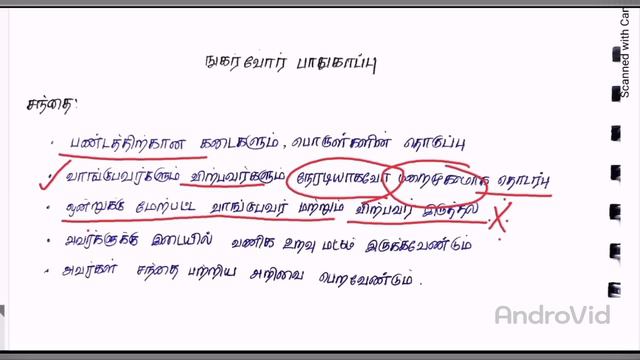 நுகர்வோர் பாதுகாப்பு
சந்தை:
• பண்டத்திற்கான கடைகளும், பொருள்களின் தொகுப்பு
• வாங்குபவர்களும் விற்பவர்களும் நேரடியாகவோ மறைமுகமாக தொடர்பு
• ஒன்றுக்கு மேற்பட்ட வாங்குபவர் மற்றும் விற்பவர் இருத்தல்
• அவர்களுக்கு இடையில் வணிக உறவு மட்டும் இருக்கவேண்டும்
• அவர்கள் சந்தை பற்றிய அறிவை பெறவேண்டும்.
Scanned with Cam
AndroVid